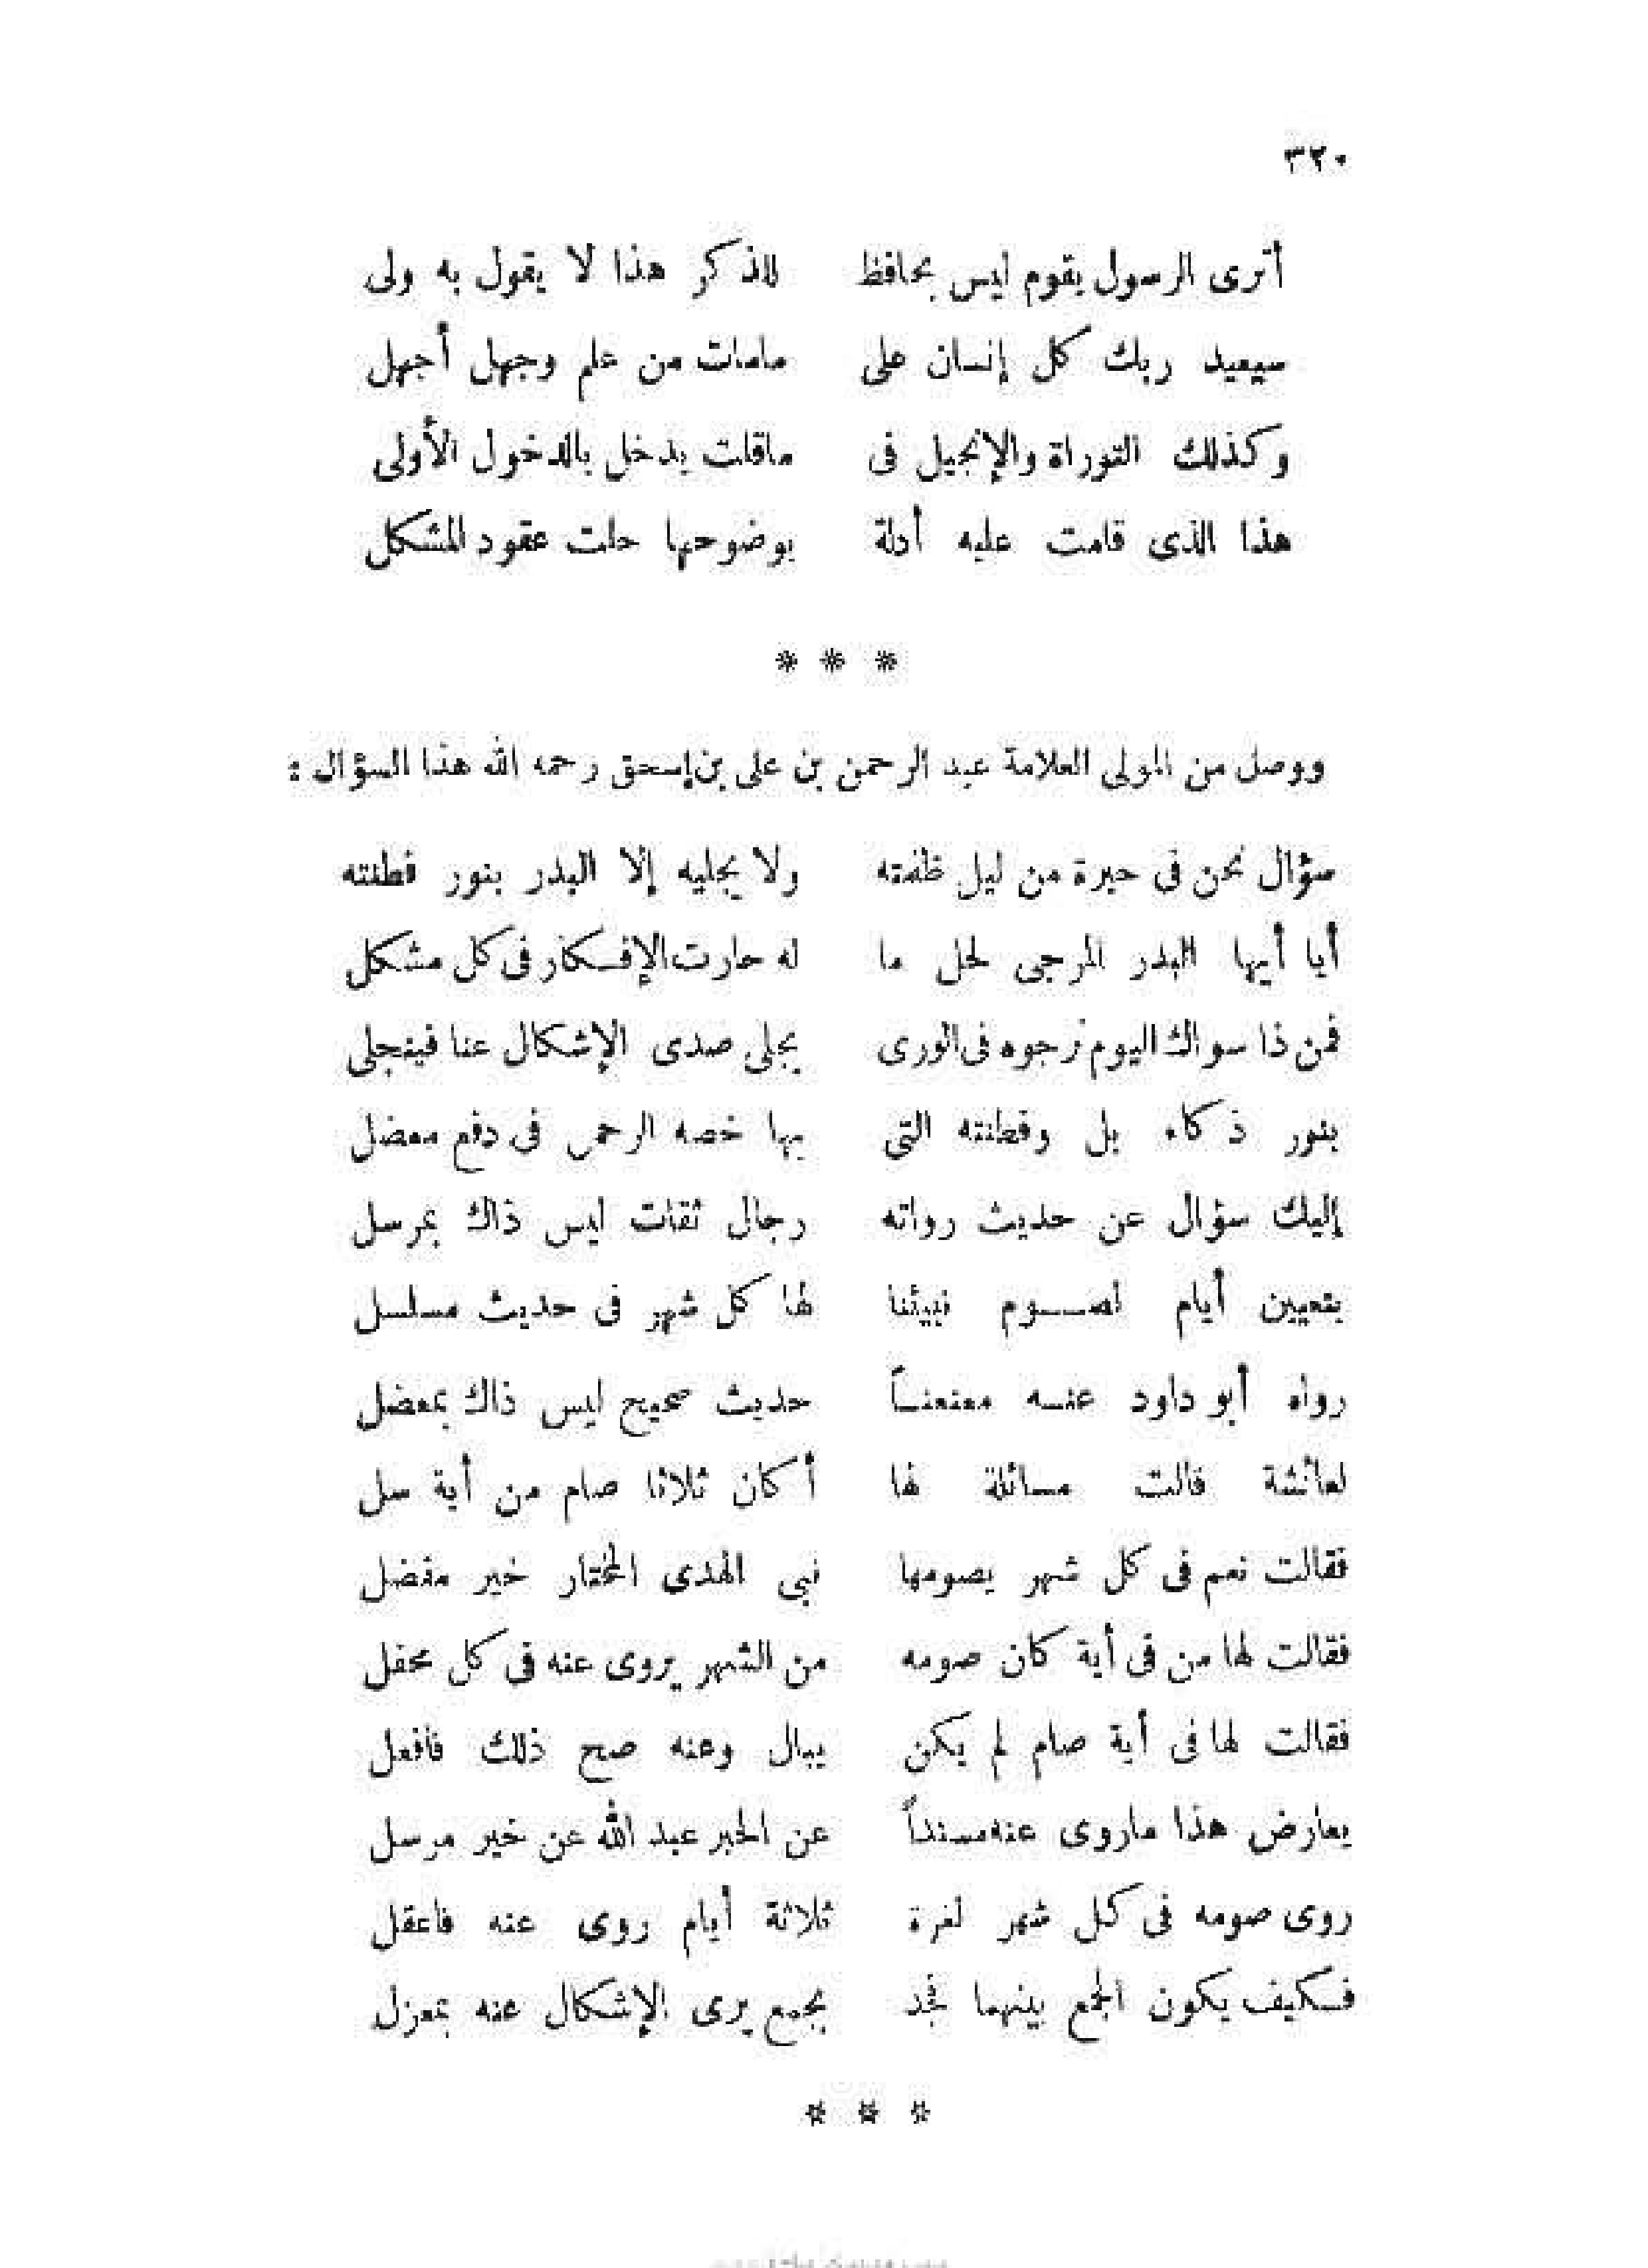 ٣٢٠
أترى الرسول يقوم ليس بحافظ للذكر هذا لا يقول به ولى
سيعيد ربك كل إنسان على مامات من علم وجهل أجهل
وكذلك التوراة والإنجيل فى ماقلت يدخل بالدخول الأولى
هذا الذى قامت عليه أدلة بوضوحها حلت عقود المشكل
* * *
ووصل من المولى العلامة عبد الرحمن بن على بن إسحق رحمه الله هذا السؤال :
سؤال نحن فى حيرة من ليل ظلمته ولا يجليه إلا البدر بنور فطنته
أيا أيها البدر المرجى لحل ما له حارت الإفكار فى كل مشكل
فمن ذا سواك اليوم نرجوه فى الورى يجلى صدى الإشكال عنا فينجلى
بنور ذكاء بل وفطنته التى بها خصه الرحمن فى دفع معضل
إليك سؤال عن حديث رواته رجال ثقات ليس ذاك بمرسل
بتعيين أيام لصوم نبيئنا لها كل شهر فى حديث مسلسل
رواه أبو داود عنه معنعناً حديث صحيح ليس ذاك بمعضل
لعائشة قالت مسائلة لها أكان ثلاثا صام من أية سل
فقالت نعم فى كل شهر يصومها نبى الهدى المختار خير مفضل
فقالت لها من فى أية كان صومه من الشهر يروى عنه فى كل محفل
فقالت لها فى أية صام لم يكن يبال وعنه صح ذلك فافعل
يعارض هذا ماروى عنه مسنداً عن الحبر عبد الله عن خير مرسل
روى صومه فى كل شهر لغرة ثلاثة أيام روى عنه فاعقل
فكيف يكون الجمع بينهما فجد بجمع يرى الإشكال عنه بمعزل
* * *